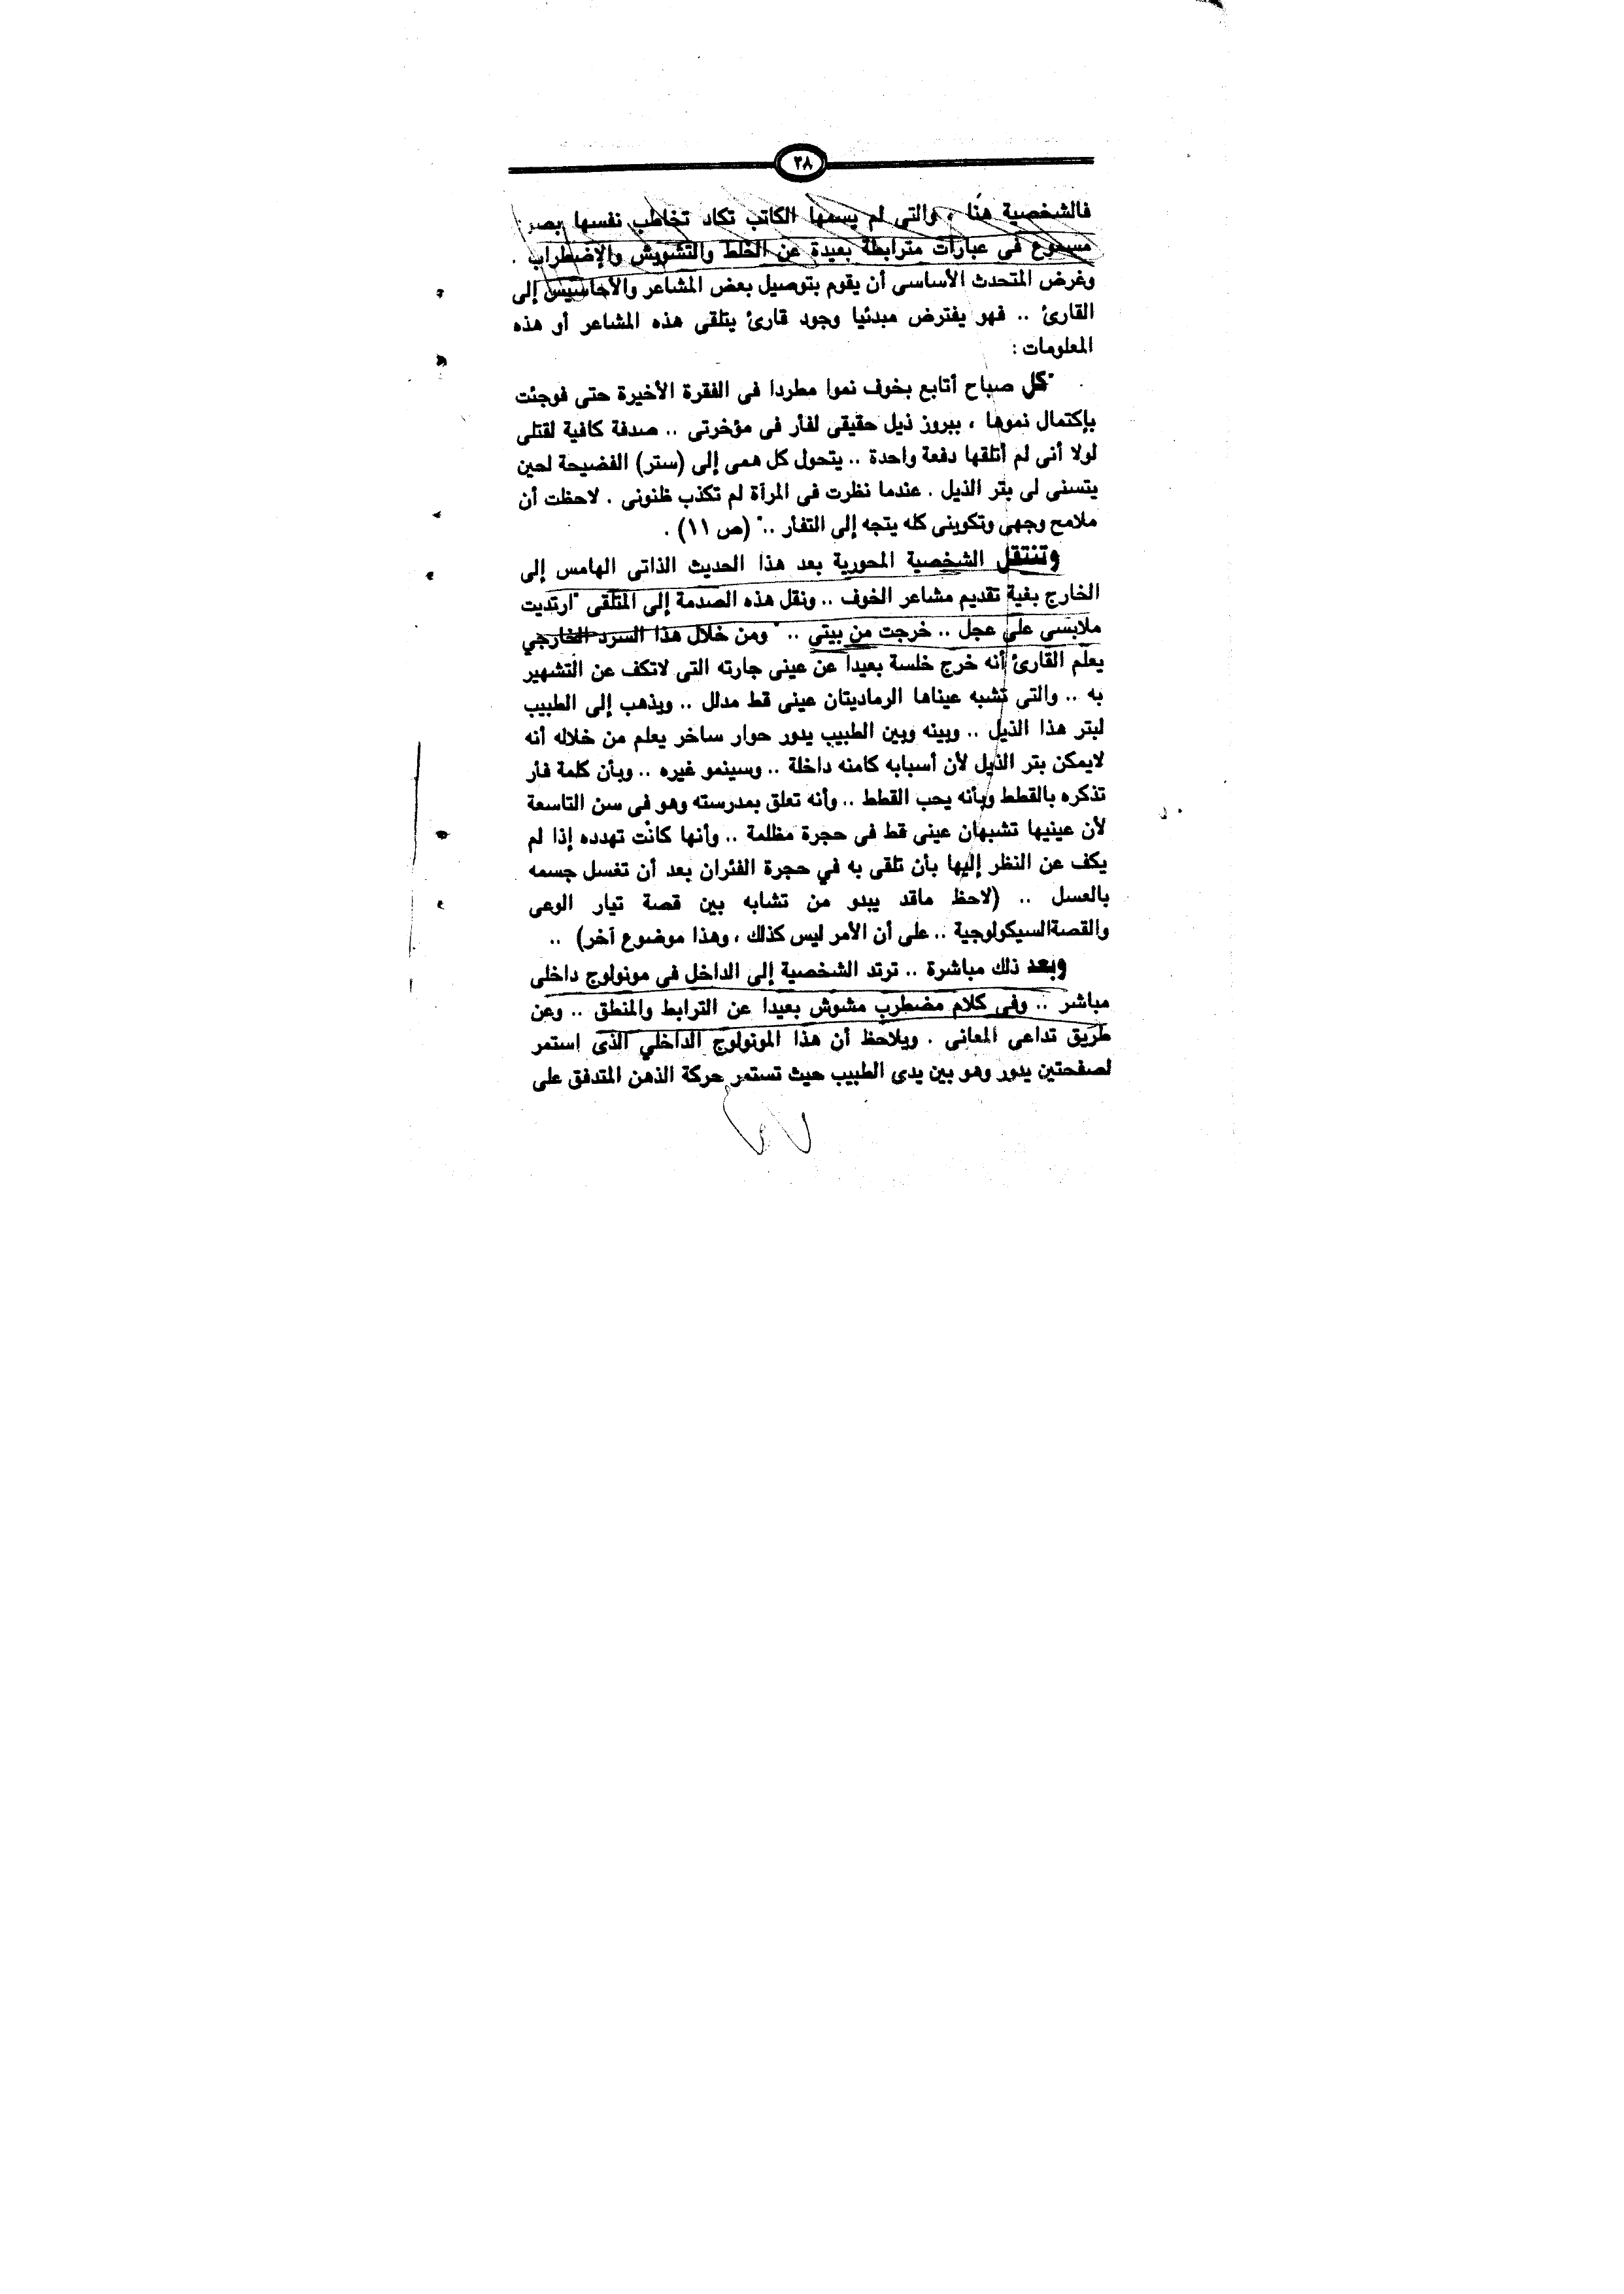 ٢٨
فالشخصية هنا ، والتى لم يسمها الكاتب تكاد تخاطب نفسها
مسموع فى عبارات مترابطة بعيدة عن الخلط والتشويش والإضطراب .
وغرض المتحدث الأساسى أن يقوم بتوصيل بعض المشاعر والأحاسيس إلى
القارئ .. فهو يفترض مبدئيا وجود قارئ يتلقى هذه المشاعر أو هذه
المعلومات :
"كل صباح أتابع بخوف نموا مطردا فى الفقرة الأخيرة حتى فوجئت
بإكتمال نموها ، ببروز ذيل حقيقى لفأر فى مؤخرتى .. صدفة كافية لقتلى
لولا أنى لم أتلقها دفعة واحدة .. يتحول كل همى إلى (ستر) الفضيحة لحين
يتسنى لى بتر الذيل . عندما نظرت فى المرآة لم تكذب ظنونى . لاحظت أن
ملامح وجهى وتكوينى كله يتجه إلى التفأر .." (ص ١١) .
وتنتقل الشخصية المحورية بعد هذا الحديث الذاتى الهامس إلى
الخارج بغية تقديم مشاعر الخوف .. ونقل هذه الصدمة إلى المتلقى "ارتديت
ملابسى على عجل .. خرجت من بيتى .. " ومن خلال هذا السرد الخارجي
يعلم القارئ أنه خرج خلسة بعيدا عن عينى جارته التى لاتكف عن التشهير
به .. والتى تشبه عيناها الرماديتان عينى قط مدلل .. ويذهب إلى الطبيب
لبتر هذا الذيل .. وبينه وبين الطبيب يدور حوار ساخر يعلم من خلاله أنه
لايمكن بتر الذيل لأن أسبابه كامنه داخلة .. وسينمو غيره .. وبأن كلمة فأر
تذكره بالقطط وبأنه يحب القطط .. وأنه تعلق بمدرسته وهو فى سن التاسعة
لأن عينيها تشبهان عينى قط فى حجرة مظلمة .. وأنها كانت تهدده إذا لم
يكف عن النظر إليها بأن تلقى به في حجرة الفئران بعد أن تغسل جسمه
بالعسل .. (لاحظ ماقد يبدو من تشابه بين قصة تيار الوعى
والقصةالسيكولوجية .. على أن الأمر ليس كذلك ، وهذا موضوع آخر) ..
وبعد ذلك مباشرة .. ترتد الشخصية إلى الداخل فى مونولوج داخلى
مباشر .. وفى كلام مضطرب مشوش بعيدا عن الترابط والمنطق .. وعن
طريق تداعى المعانى . ويلاحظ أن هذا المونولوج الداخلي الذى استمر
لصفحتين يدور وهو بين يدى الطبيب حيث تستمر حركة الذهن المتدفق على